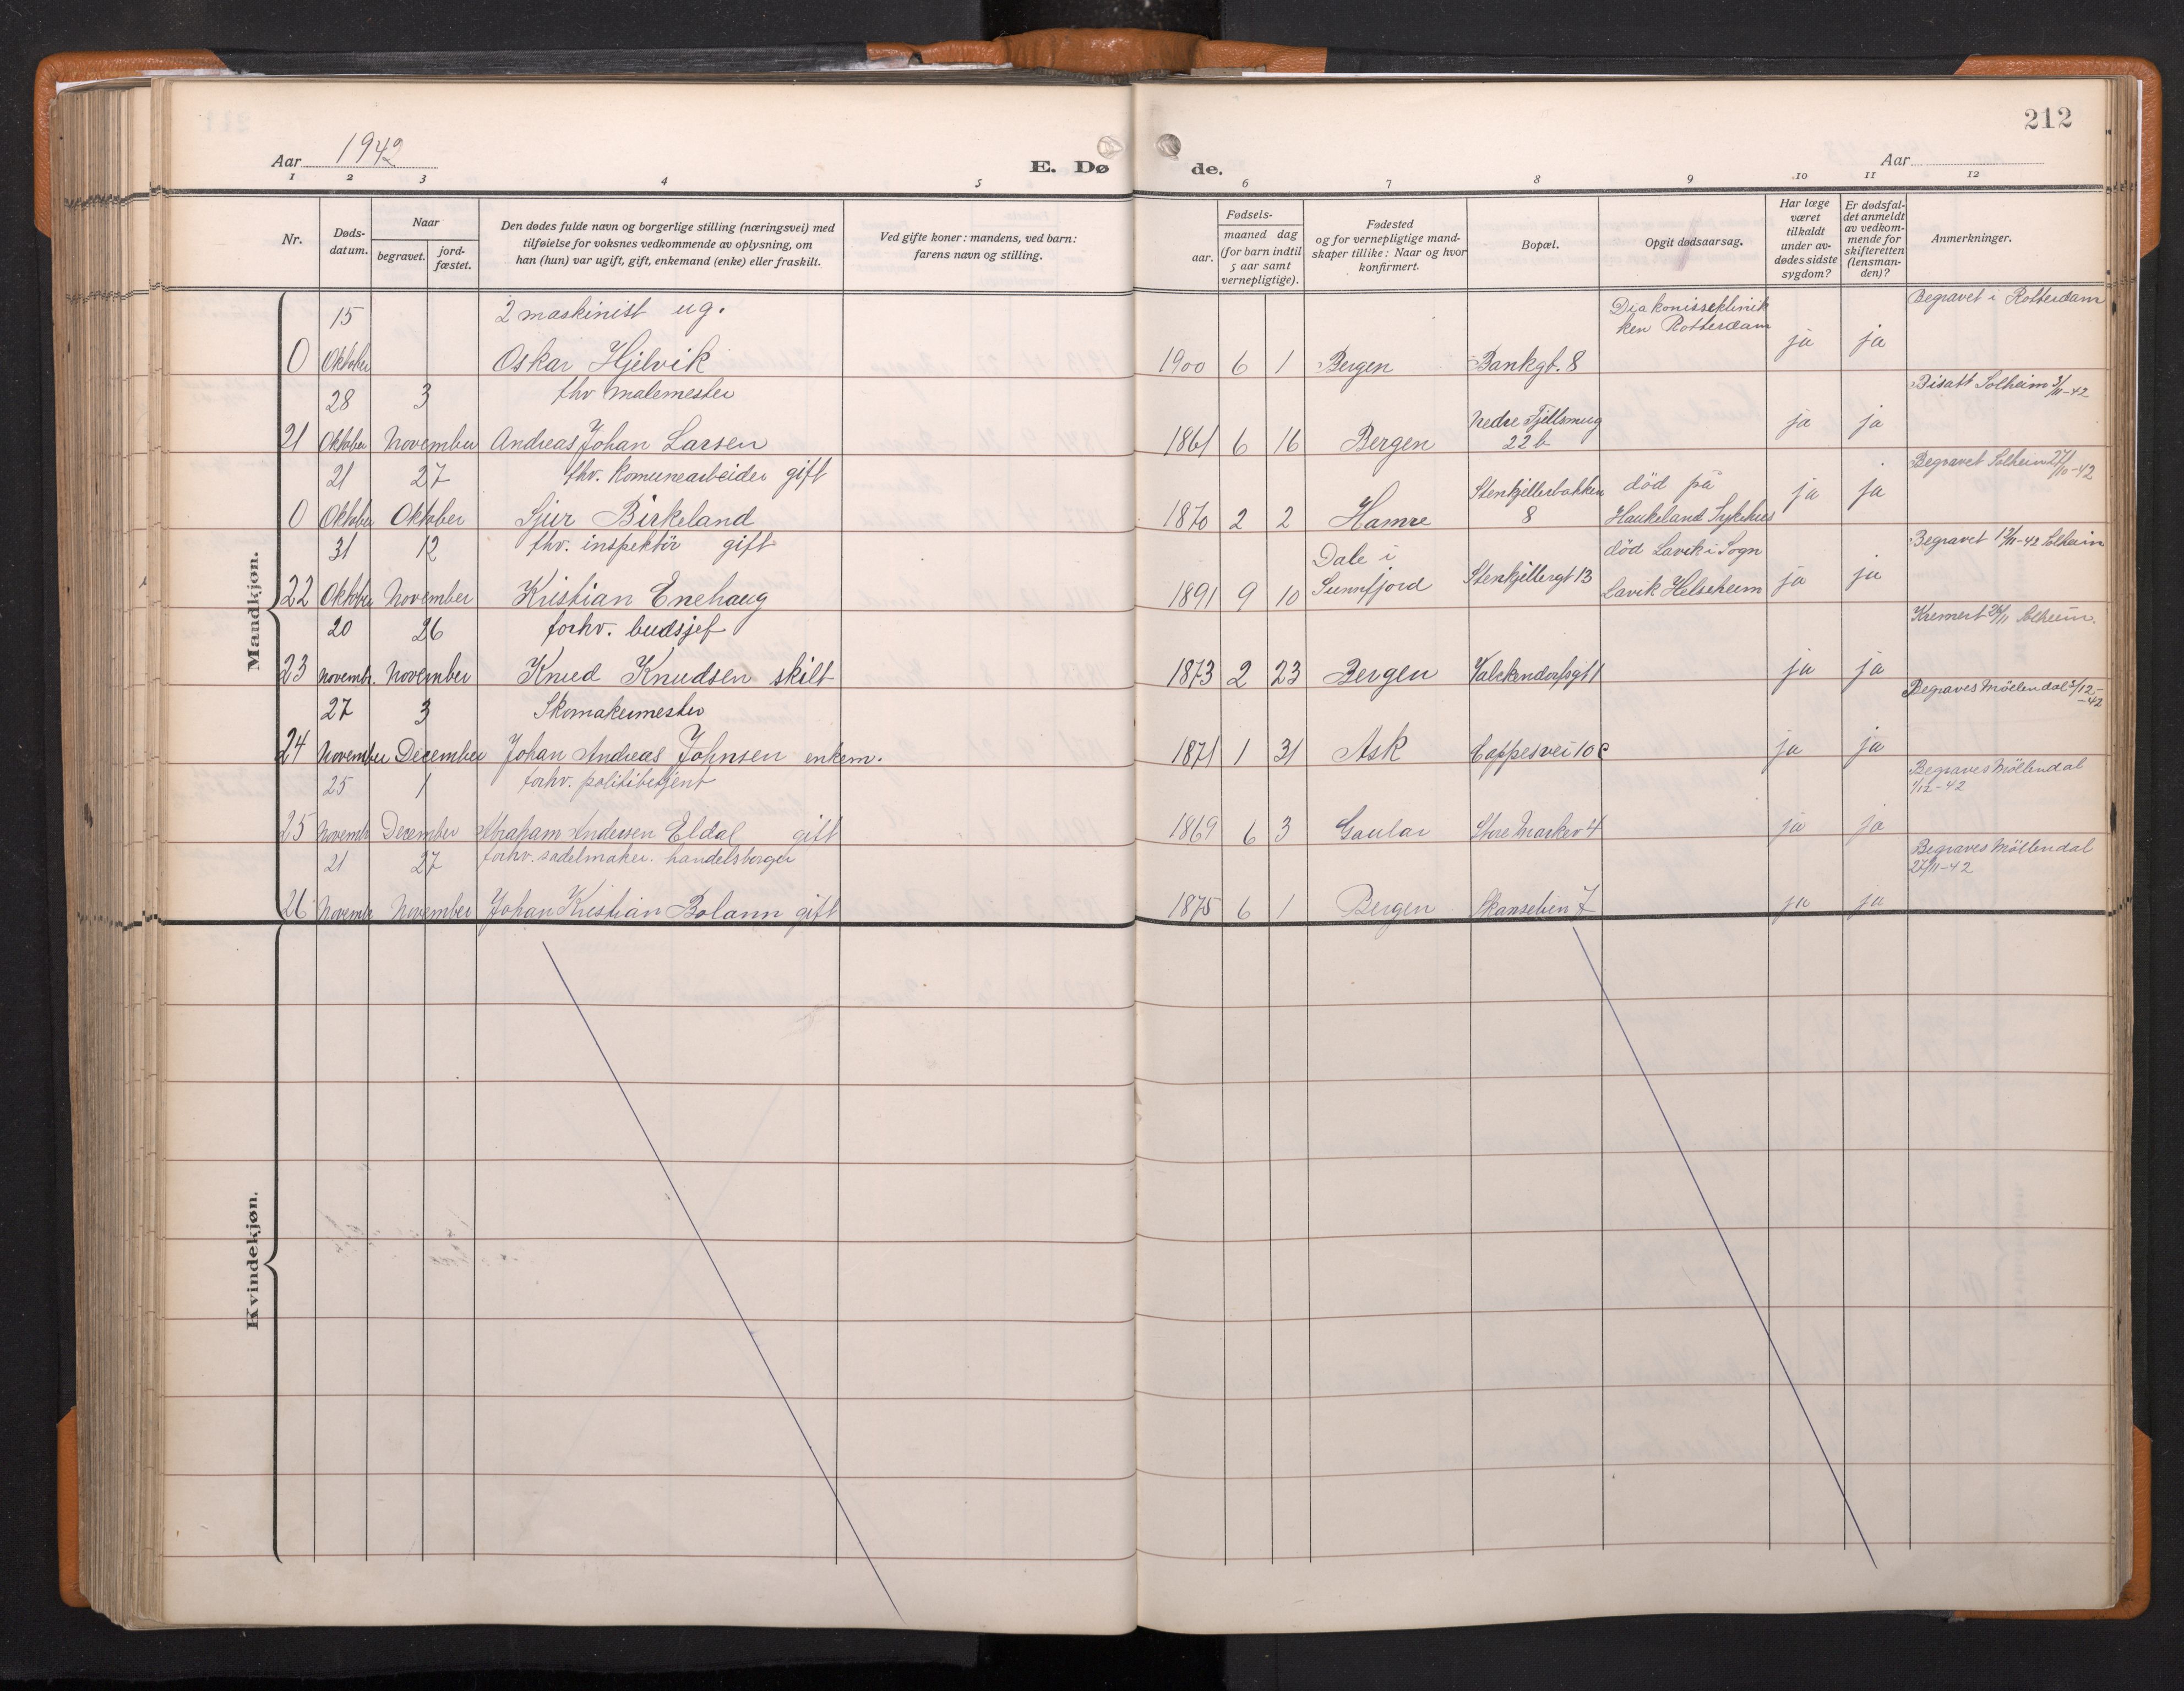 212
Aar 1942
E. Døde.
Aar
1 2 3 4 5 6 7 8 9 10 11 12
Nr.
Døds-
datum.
Naar
begravet.
jord-
fæstet.
Den dødes fulde navn og borgerlige stilling (næringsvei) med
tilføielse for voksnes vedkommende av oplysning, om
han (hun) var ugift, gift, enkemand (enke) eller fraskilt.
Ved gifte koner: mandens, ved barn:
farens navn og stilling.
Fødsels-
aar.
maaned dag
(for barn indtil
5 aar samt
vernepligtige).
Fødested
og for vernepligtige mand-
skaper tillike: Naar og hvor
konfirmert.
Bopæl.
Opgit dødsaarsag.
Har læge
været
tilkaldt
under av-
dødes sidste
sygdom?
Er dødsfal-
det anmeldt
av vedkom-
mende for
skifteretten
(lensman-
den)?
Anmerkninger.
Mandkjøn.
15 2 maskinist ug. Diakonisseklinik Begravet i Rotterdam
ken Rotterdam
0 Oktober Oskar Hjelvik 1900 6 1 Bergen Bankgt. 8 ja ja
28 3 fhv malemester Bisatt Solheim 3/11-42
Nedre Fjellsmug
21 Oktober November Andreas Johan Larsen 1861 6 16 Bergen 22 b ja ja
21 27 fhv. komunearbeider gift Begravet Solheim 27/10-42
Stenkjellerbakken død på
0 Oktober Oktober Sjur Birkeland 1870 2 2 Hamre 8 Haukeland Sykehus ja ja
31 12 fhv. inspektør gift Dale i død Lavik i Sogn Begravet 12/11-42 Solheim
22 Oktober November Kristian Enehaug 1891 9 10 Sunnfjord Stenkjellergt 13 Lavik Helseheim ja ja
20 26 forhv. budsjef Kremert 26/11 Solheim.
23 Novembr. November Knud Knudsen skilt 1873 2 23 Bergen Valckendorfsgt 1 ja ja
27 3 Skomakermester Begraves Möllendal 3/12-
-42
24 November December Johan Andreas Johnsen enkem. 1871 1 31 Ask Cappesvei 10 c ja ja
25 1 forhv. politibetjent Begraves Möllendal
1/12-42
25 Novembr December Abraham Andersen Eldal gift 1869 6 3 Gaular Store Markev 4 ja ja
21 27 forhv. sadelmaker. handelsborger Begraves Möllendal
27/11-42
26 Novembr November Johan Kristian Bolann gift 1875 6 1 Bergen Skanselien 7 ja ja
Kvindekjøn.